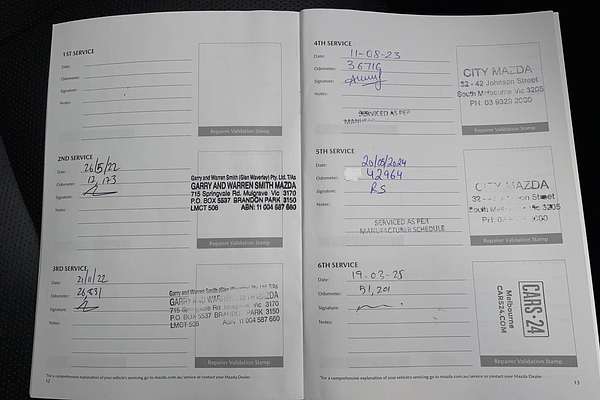 1ST SERVICE
Date:
Odometer:
Signature:
Notes:
Repairer Validation Stamp
2ND SERVICE
Date: 26/5/22
Odometer: 12,173
Signature:
Notes:
Garry and Warren Smith (Glen Waverley) Pty. Ltd. T/As
GARRY AND WARREN SMITH MAZDA
715 Springvale Rd. Mulgrave Vic 3170
P.O. BOX 5337 BRANDON PARK 3150
LMCT 506 ABN: 11 004 587 660
3RD SERVICE
Date: 21/11/22
Odometer:
Signature:
Notes:
Garry and Warren Smith (Glen Waverley) Pty. Ltd. T/As
GARRY AND WARREN SMITH MAZDA
715 Springvale Rd. Mulgrave Vic 3170
P.O. BOX 5337 BRANDON PARK 3150
LMCT 506 ABN: 11 004 587 660
Repairer Validation Stamp
*For a comprehensive explanation of your vehicle's servicing go to mazda.com.au/service or contact your Mazda Dealer.
12
4TH SERVICE
Date: 11-08-23
Odometer: 36716
Signature:
Notes:
SERVICED AS PER
CITY MAZDA
32 - 42 Johnson Street
South Melbourne Vic 3205
PH: 03 9329 2000
Repairer Validation Stamp
5TH SERVICE
Date: 20/05/2024
Odometer: 42964
Signature: RS
Notes:
SERVICED AS PER
MANUFACTURER SCHEDULE
CITY MAZDA
South Melbourne Vic 3205
Repairer Validation Stamp
6TH SERVICE
Date: 19-03-25
Odometer: 51,201
Signature:
Notes:
CARS24
Melbourne
CARS24.COM
Repairer Validation Stamp
*For a comprehensive explanation of your vehicle's servicing go to mazda.com.au/service or contact your Mazda Dealer.
13